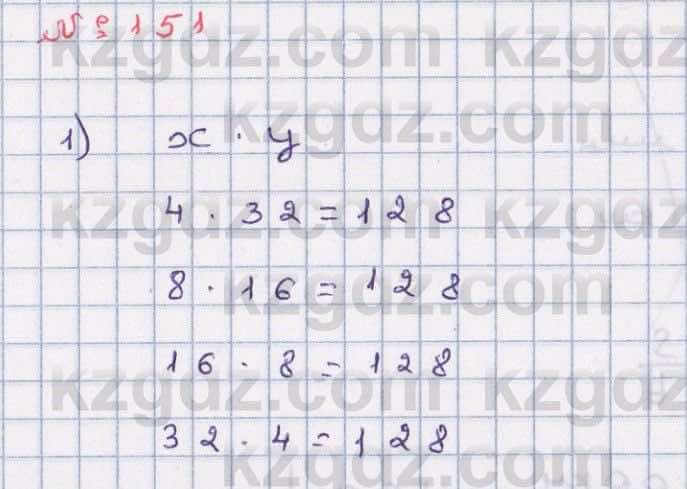 № 151
kzgdz.com kzgdz.com
1) x · y
kzgdz.com
4 · 32 = 128
kzgdz.com kzgdz.com
8 · 16 = 128
kzgdz.com
16 · 8 = 128
kzgdz.com kzgdz.com
32 · 4 = 128
kzgdz.com